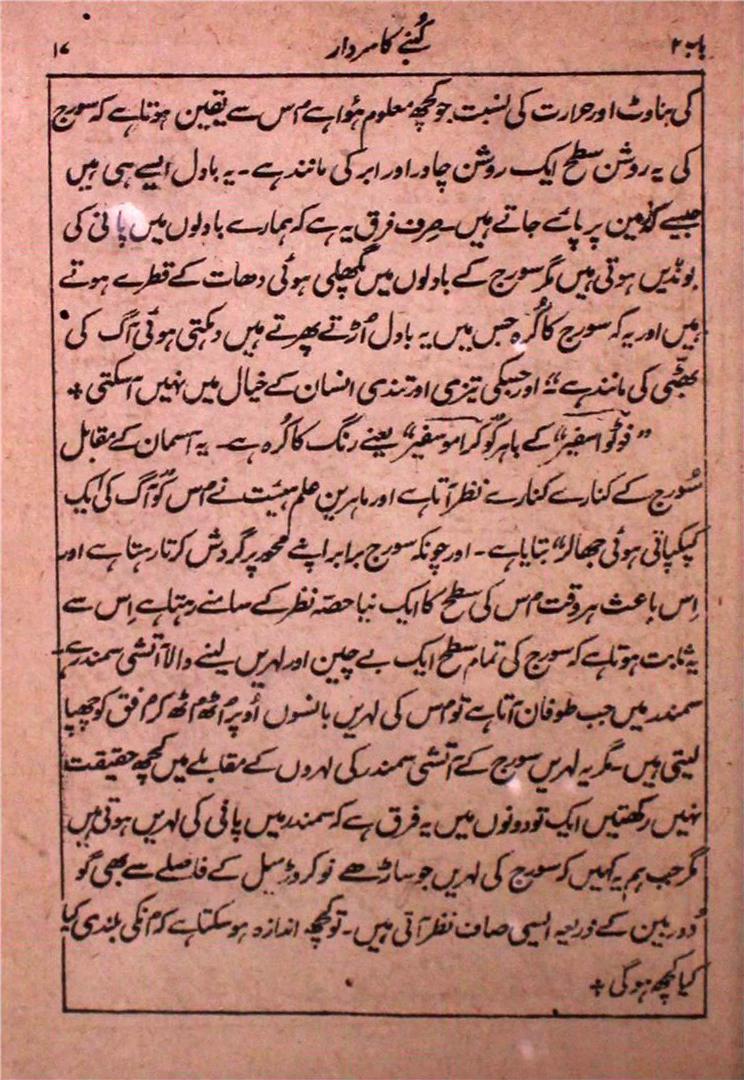 باب ۲ کُنبے کا سردار ۱۷
کی بناوٹ اور حرارت کی نسبت جو کچھ معلوم ہُوا ہے اُس سے یقین ہوتا ہے کہ سورج
کی یہ روشن سطح ایک روشن چادر اور ابر کی مانند ہے۔ یہ بادل ایسے ہی ہیں
جیسے کہ زمین پر پائے جاتے ہیں۔ صِرف فرق یہ ہے کہ ہمارے بادلوں میں پانی کی
بوندیں ہوتی ہیں مگر سورج کے بادلوں میں پگھلی ہوئی دھات کے قطرے ہوتے
ہیں اور یہ کہ سورج کا کُرہ جس میں یہ بادل اُڑتے پھرتے ہیں دہکتی ہوئی آگ کی
بھٹّی کی مانند ہے“ اور جسکی تیزی اور تندی انسان کے خیال میں نہیں آ سکتی +
”فوٹو اسفیر“ کے باہر کو ”کراموسفیر“ یعنے رنگ کا کُرہ ہے۔ یہ آسمان کے مقابل
سُورج کے کنارے کنارے نظر آتا ہے اور ماہرینِ علم ہیئت نے اس کو ”آگ کی ایک
کپکپاتی ہوئی جھالر“ بتایا ہے۔ اور چونکہ سورج برابر اپنے محور پر گردش کرتا رہتا ہے اور
اِس باعث ہر وقت اُس کی سطح کا ایک نیا حصّہ نظر کے سامنے رہتا ہے اِس سے
یہ ثابت ہوتا ہے کہ سورج کی تمام سطح ایک بے چین اور لہریں لینے والا آتشی سمندر ہے۔
سمندر میں جب طوفان آتا ہے تو اُس کی لہریں بانسوں اُوپر اُٹھ اُٹھ کر اُفق کو چھپا
لیتی ہیں۔ مگر یہ لہریں سورج کے آتشی سمندر کی لہروں کے مقابلے میں کچھ حقیقت
نہیں رکھتیں ایک تو دونوں میں یہ فرق ہے کہ سمندر میں پانی کی لہریں ہوتی ہیں
مگر جب ہم یہ کہیں کہ سورج کی لہریں جو ساڑھے نو کروڑ میل کے فاصلے سے بھی گو
دُور بین کے ذریعہ ایسی صاف نظر آتی ہیں۔ تو کچھ اندازہ ہو سکتا ہے کہ اُنکی بلندی کیا
کیا کچھ ہو گی +